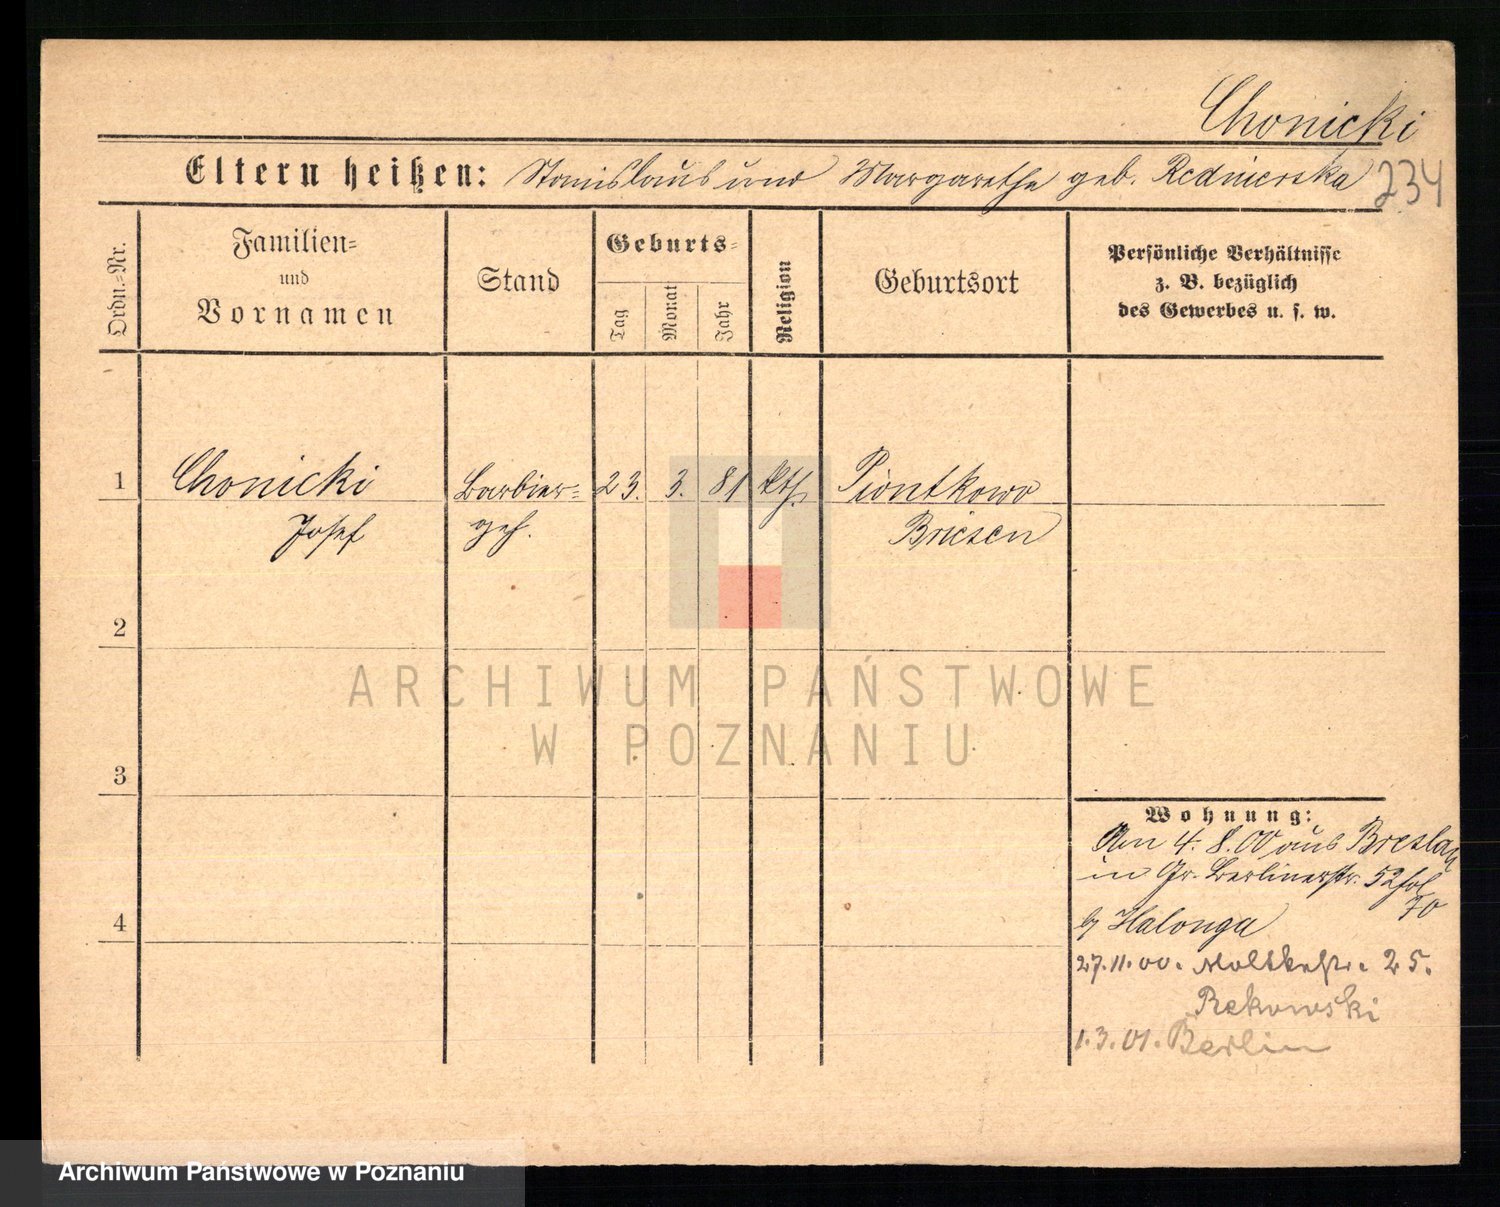 Chonicki
Eltern heißen: Stanislaus und Margarethe geb. Rednierska
234
Ordn.-Nr.
Familien- und Vornamen
Stand
Geburts-
Tag
Monat
Jahr
Religion
Geburtsort
Persönliche Verhältnisse
z. B. bezüglich
des Gewerbes u. s. w.
1 Chonicki Barbier- 23. 3. 81 kth. Piontkowo
Josef geh. Briesen
2
3
4
ARCHIWUM PAŃSTWOWE
W POZNANIU
Wohnung:
Am 4. 8. 00 aus Breslau
in Gr. Berlinerstr. 52 fol
70
b/ Halonga
27.11.00. Moltkestr. 25.
Rekowski
1.3.01. Berlin
Archiwum Państwowe w Poznaniu